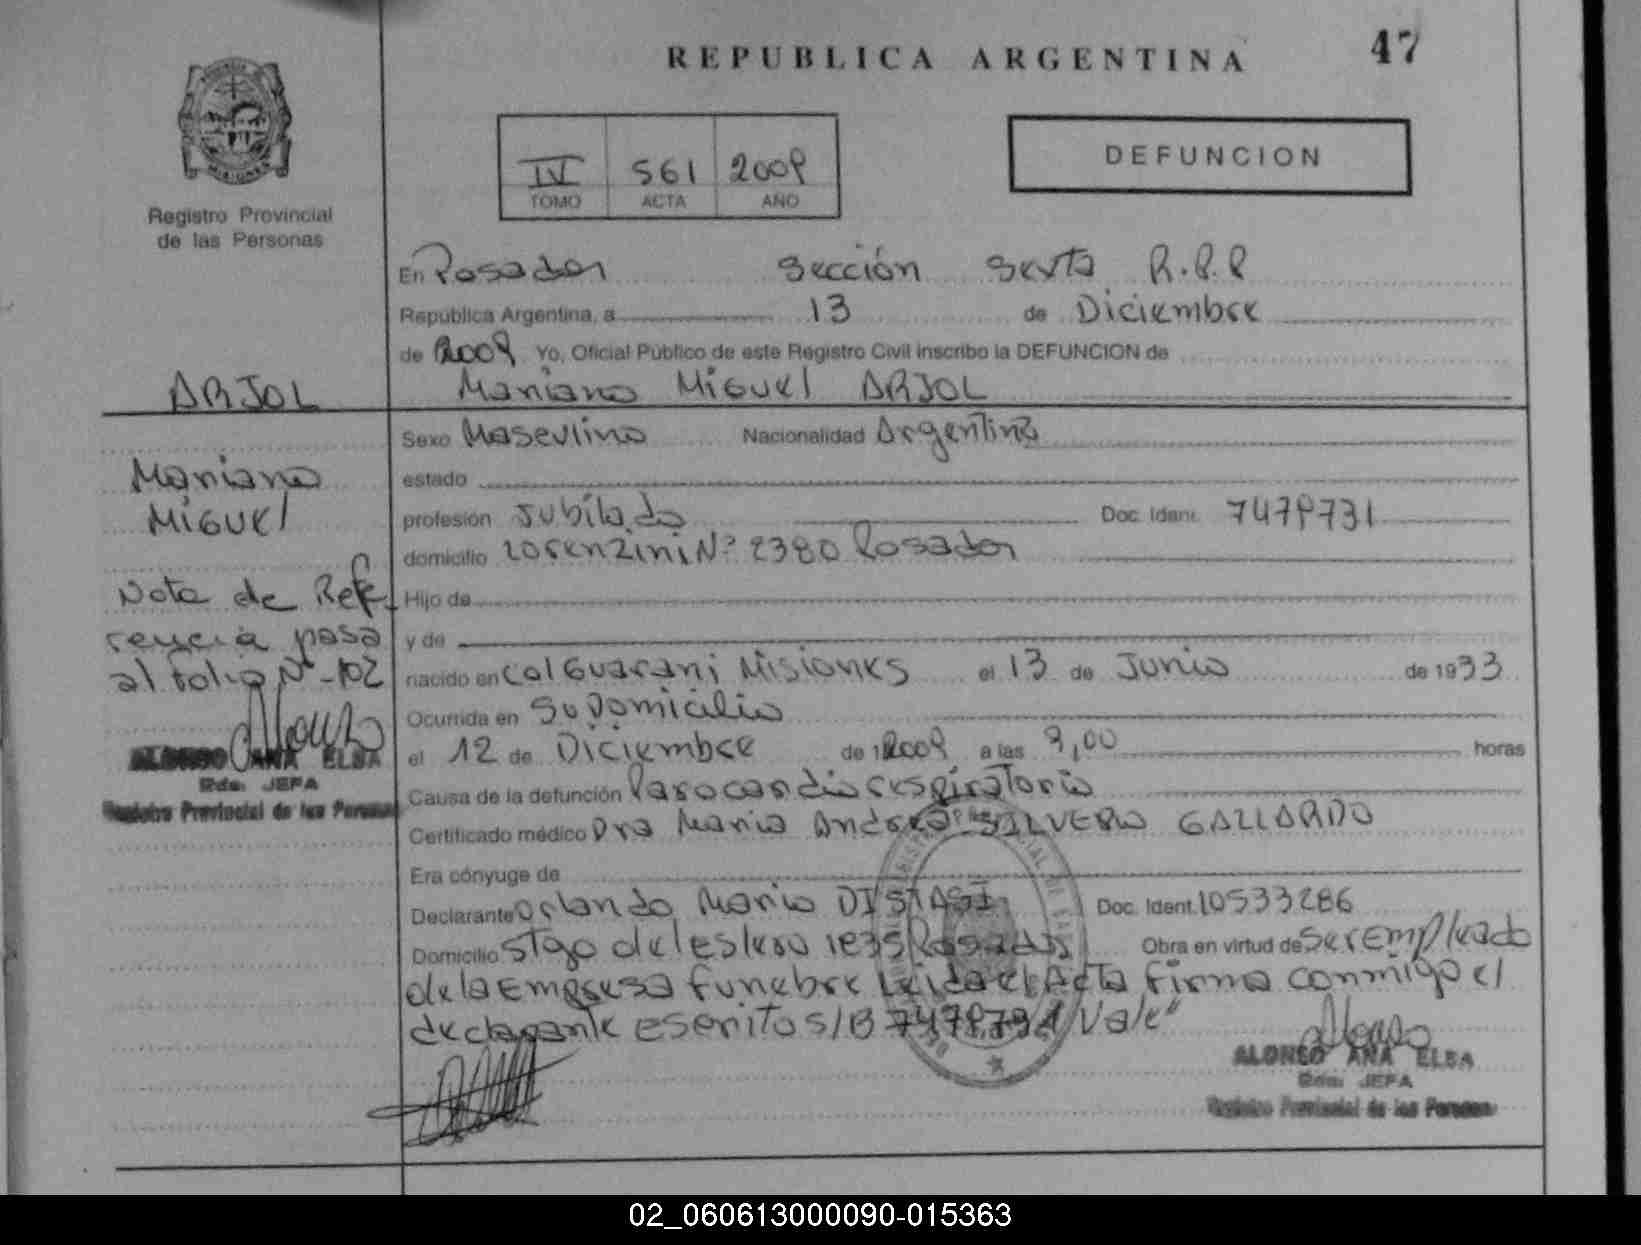 REPUBLICA ARGENTINA 47
IV 561 2009
TOMO ACTA AÑO
DEFUNCION
Registro Provincial
de las Personas
En Posadas Sección Sexta R.P.P
Republica Argentina, a 13 de Diciembre
de 2009 Yo, Oficial Publico de este Registro Civil inscribo la DEFUNCION de
Mariano Miguel ARJOL
ARJOL
Mariano
Miguel
Nota de Refe
rencia pasa
al folio Nº 102
ALONSO ANA ELBA
Rda. JEFA
Registro Provincial de las Personas
Sexo Masculino Nacionalidad Argentina
estado
profesión Jubilado Doc. Ident. 7479731
domicilio Nº 2380 Posadas
Hijo de
y de
nacido en Col Guarani Misiones el 13 de Junio de 1933
Ocurrida en Su Domicilio
el 12 de Diciembre de 2009 a las 9,00 horas
Causa de la defunción Parocardiorespiratorio
Certificado médico Dra Maria Andrea SILVERO GALLARDO
Era cónyuge de
Declarante Orlando Mario DI STASI Doc. Ident. 10533286
Domicilio Stgo del estero 1835 Posadas Obra en virtud de Ser Empleado
de la Empresa funebre Leida el Acta firma conmigo el
declarante escrito S/B 7479731 "Vale"
ALONSO ANA ELBA
Rda. JEFA
Registro Provincial de las Personas
02_060613000090-015363